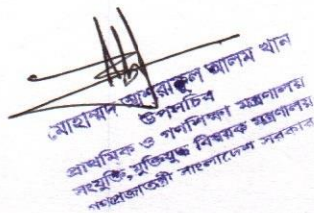 মোহাম্মদ আশরাফুল আলম খান
উপসচিব
প্রাথমিক ও গণশিক্ষা মন্ত্রণালয়
সংযুক্তি,মুক্তিযুদ্ধ বিষয়ক মন্ত্রণালয়
গণপ্রজাতন্ত্রী বাংলাদেশ সরকার